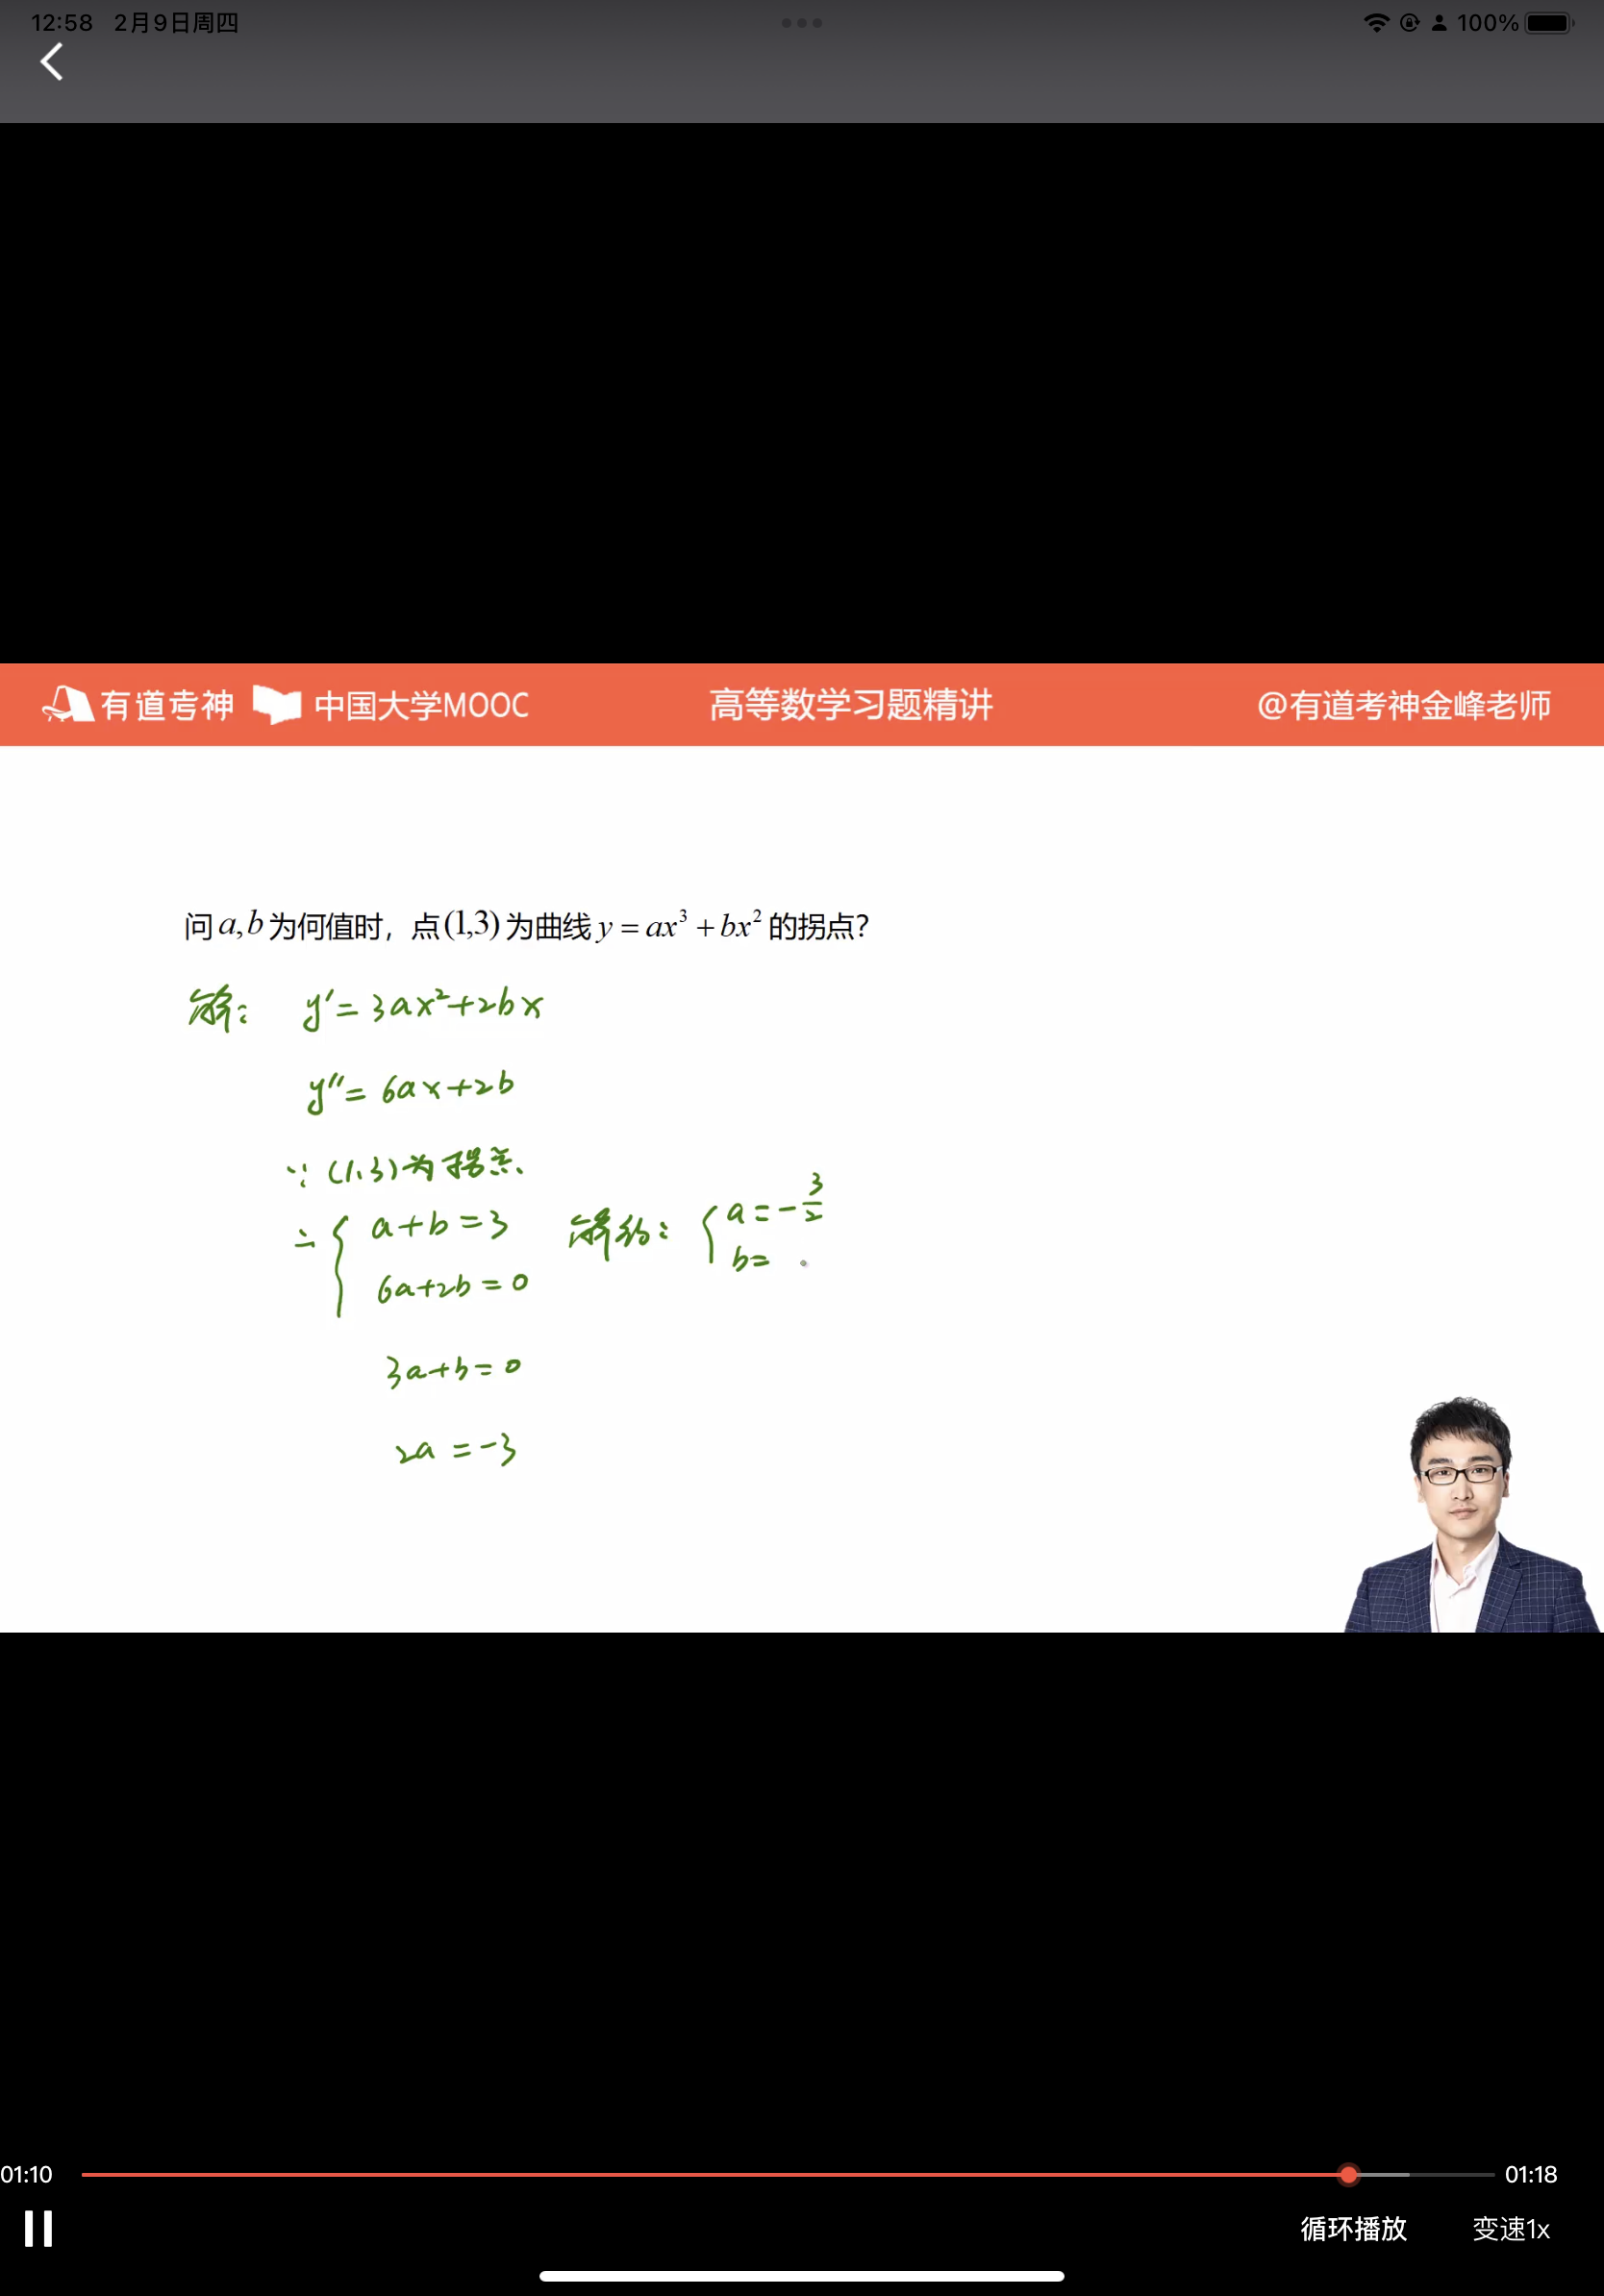 12:58 2月9日周四
100%
有道考神 中国大学MOOC 高等数学习题精讲 @有道考神金峰老师
问a,b为何值时，点(1,3)为曲线y=ax³+bx²的拐点?
解: y'=3ax²+2bx
y''=6ax+2b
∵(1,3)为拐点、
∴{ a+b=3 解得: { a=-3/2
6a+2b=0 b=
3a+b=0
2a=-3
01:10 01:18
循环播放 变速1x